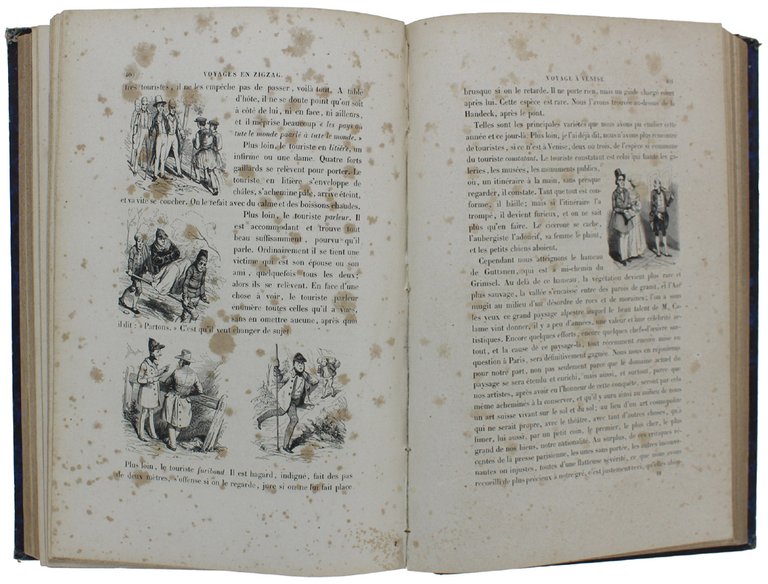 400 VOYAGES EN ZIGZAG.
tres touristes, il ne les empêche pas de passer, voilà tout. A table
d'hôte, il ne doute point qu'on soit
à côté de lui, ni en face, ni ailleurs,
et il méprise beaucoup « les pays où
tute le monde paarlé à tute le monde. »
Plus loin, le touriste en litière, un
infirme ou une dame. Quatre forts
gaillards se relèvent pour porter. Le
touriste en litière s'enveloppe de
châles, s'achemine pâle, arrive éteint,
et va vite se coucher. On le refait avec du calme et des boissons chaudes.
Plus loin, le touriste parleur. Il
est accommodant et trouve tout
beau suffisamment, pourvu qu'il
parle. Ordinairement il se trent
une victime qui est son épouse ou son
ami, quelquefois tous les deux;
alors ils se relèvent. En face d'une
chose à voir, le touriste parleur
énumère toutes celles qu'il a vues,
sans en omettre aucune, après quoi
il dit : « Partons. » C'est qu'il veut changer de sujet
Plus loin, le touriste furibond. Il est hagard, indigné, fait des pas
de deux mètres, s'offense si on le regarde, jure si on ne lui fait place.
VOYAGE A VENISE. 401
brusque si on le retarde. Il ne porte rien, mais un guide chargé court
après lui. Cette espèce est rare. Nous l'avons trouvée au-dessus de la
Handeck, après le pont.
Telles sont les principales variétés que nous avons pu étudier cette
année et ce jour-là. Plus loin, je l'ai déjà dit, nous n'avons plus rencontré
de touristes, si ce n'est à Venise, deux ou trois, de l'espèce si commune
du touriste constatant. Le touriste constatant est celui qui hante les ga-
leries, les musées, les monuments publics,
un itinéraire à la main, sans presque
regarder, il constate. Tant que tout est con-
forme, il bâille; mais si l'itinéraire l'a
trompé, il devient furieux, et on ne sait
plus qu'en faire. Le cicerone se carbe,
l'aubergiste l'adoucit, sa femme le plaint,
et les petits chiens aboient.
Cependant nous atteignons le hameau
de Guttanen, qui est à mi-chemin du
Grimsel. Au delà de ce hameau, la végétation devient plus rare et
plus sauvage, la vallée s'encaisse entre des parois de granit, et l'Aar
mugit au milieu d'un désordre de rocs et de moraines; l'on a sous
les yeux ce grand paysage alpestre auquel le beau talent de M. Ca-
lame vint donner, il y a peu d'années, une valeur et une célébrité ar-
tistiques. Encore quelques efforts, encore quelques chefs-d'œuvre sur-
tout, et la cause de ce paysage-là, tout récemment encore mise en
question à Paris, sera définitivement gagnée. Nous nous en réjouirons
pour notre part, non pas seulement parce que le domaine actuel du
paysage se sera étendu et enrichi, mais aussi, et surtout, parce que
nos artistes, après avoir eu l'honneur de cette conquête, seront par cela
même acheminés à la conserver, et qu'il y aura ainsi au milieu de nous
un art suisse vivant sur le sol et du sol; au lieu d'un art cosmopolite
qui ne serait propre, avec le théâtre, avec tant d'autres choses, qu'à
limer, lui aussi, par un petit coin, le premier, le plus cher, le plus
grand de nos biens, notre nationalité. Au surplus, de ces critiques ré-
centes de la presse parisienne, les unes sans portée, les autres inconve-
nantes ou injustes, toutes d'une flatteuse sévérité, ce que nous avons
recueilli de plus précieux à notre gré, c'est justement ceci, qu'elles